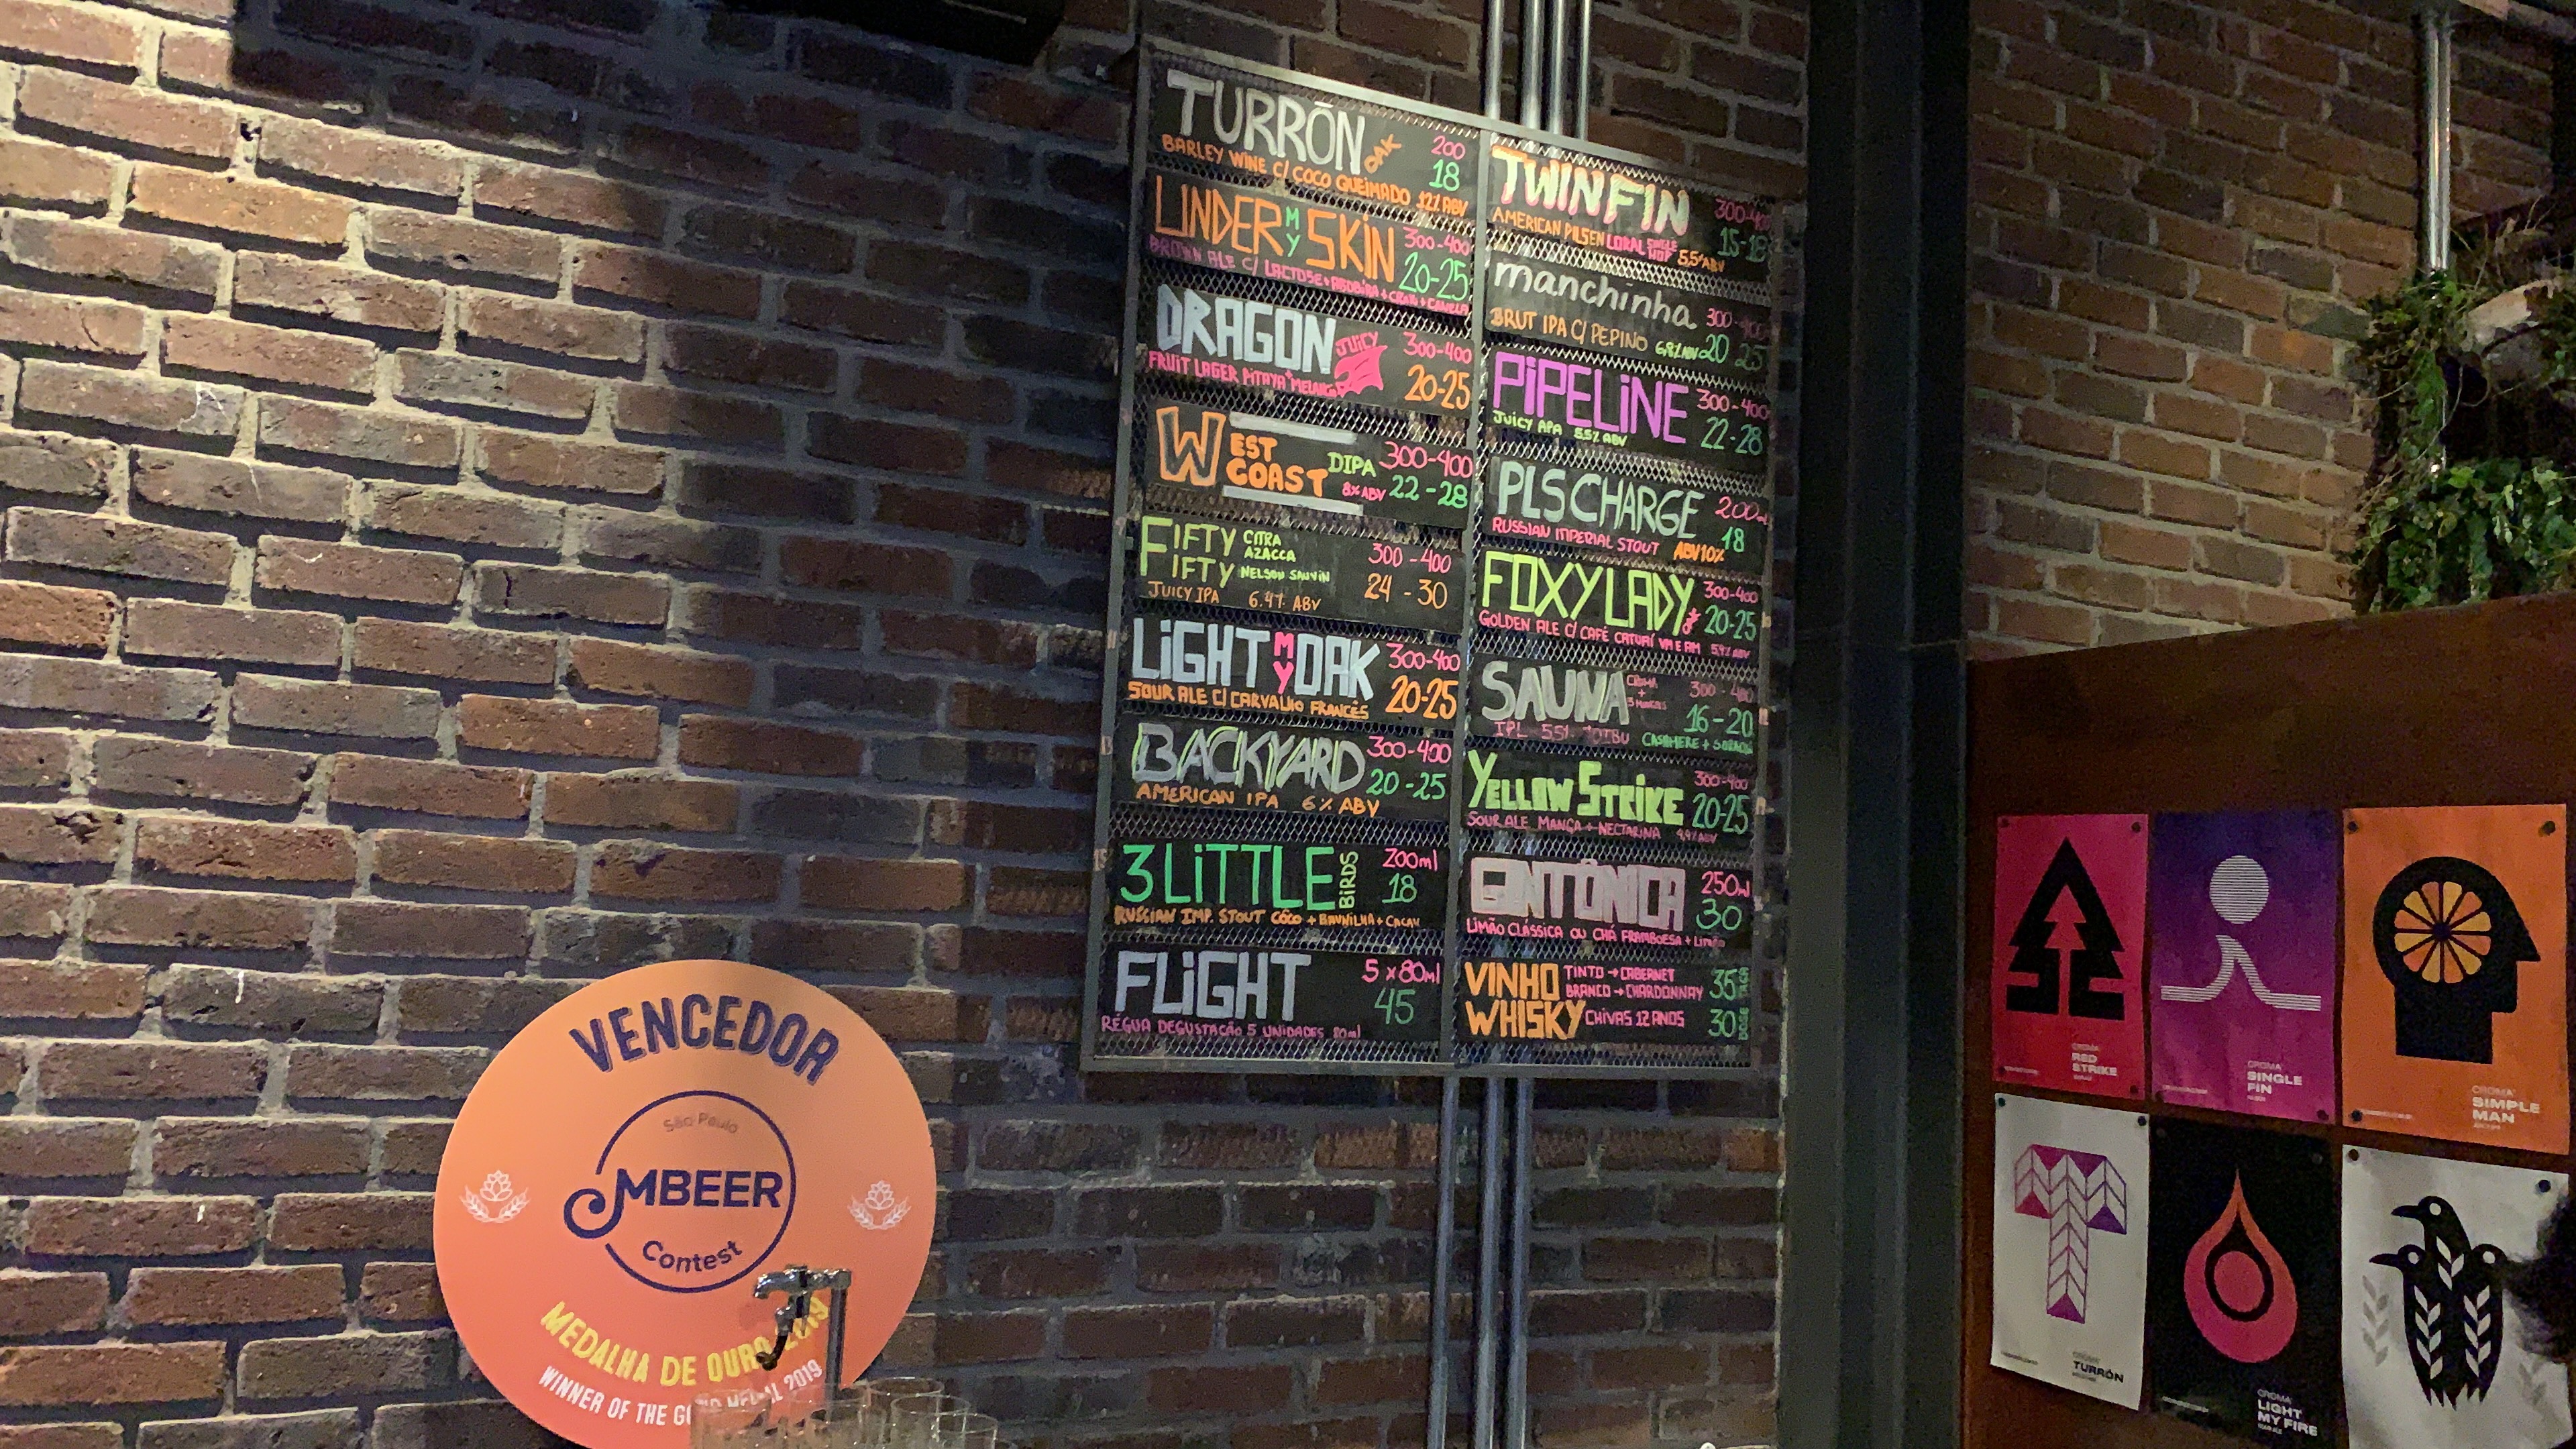 TURRÓN OAK 200
BARLEY WINE C/ COCO QUEIMADO 12% ABV 18
UNDER MY SKIN 300-400
BROWN ALE C/ LACTOSE + ABÓBORA + CRAVO + CANELA 20-25
DRAGON JUICY 300-400
FRUIT LAGER PITAYA + MELANCIA 20-25
WEST COAST DIPA 300-400
8% ABV 22-28
FIFTY FIFTY CITRA AZACCA NELSON SAUVIN 300-400
JUICY IPA 6.4% ABV 24-30
LIGHT MY OAK 300-400
SOUR ALE C/ CARVALHO FRANCÊS 20-25
BACKYARD 300-400
AMERICAN IPA 6% ABV 20-25
3 LITTLE BIRDS 200ml
18
RUSSIAN IMP. STOUT CÔCO + BAUNILHA + CACAU
FLIGHT 5 x 80ml
45
RÉGUA DEGUSTAÇÃO 5 UNIDADES 80ml
TWIN FIN 300-400
AMERICAN PILSEN LORAL SINGLE HOP 5.5% ABV 15-18
manchinha 300-400
BRUT IPA C/ PEPINO 6,8% ABV 20 25
PIPELINE 300-400
JUICY APA 5.5% ABV 22-28
PLS CHARGE 200ml
18
RUSSIAN IMPERIAL STOUT ABV 10%
FOXY LADY 300-400
20-25
GOLDEN ALE C/ CAFÉ CATUAÍ VM E AM 5,9% ABV
SAUNA CROMA + 300-400
16-20
IPL 5.5% CASHMERE +
YELLOW STRIKE 300-400
20-25
SOUR ALE MANGA + NECTARINA 4,4% ABV
GINTÔNICA 250ml
30
LIMÃO CLÁSSICA OU CHÁ FRAMBOESA + Limão
VINHO TINTO → CABERNET
BRANCO → CHARDONNAY 35 TAÇA
WHISKY CHIVAS 12 ANOS 30 DOSE
VENCEDOR
São Paulo
MBEER
Contest
MEDALHA DE OURO 2019
WINNER OF THE GOLD MEDAL 2019
CROMA
RED
STRIKE
CROMA
SINGLE
FIN
CROMA
SIMPLE
MAN
CROMA
TURRÓN
CROMA
LIGHT
MY FIRE